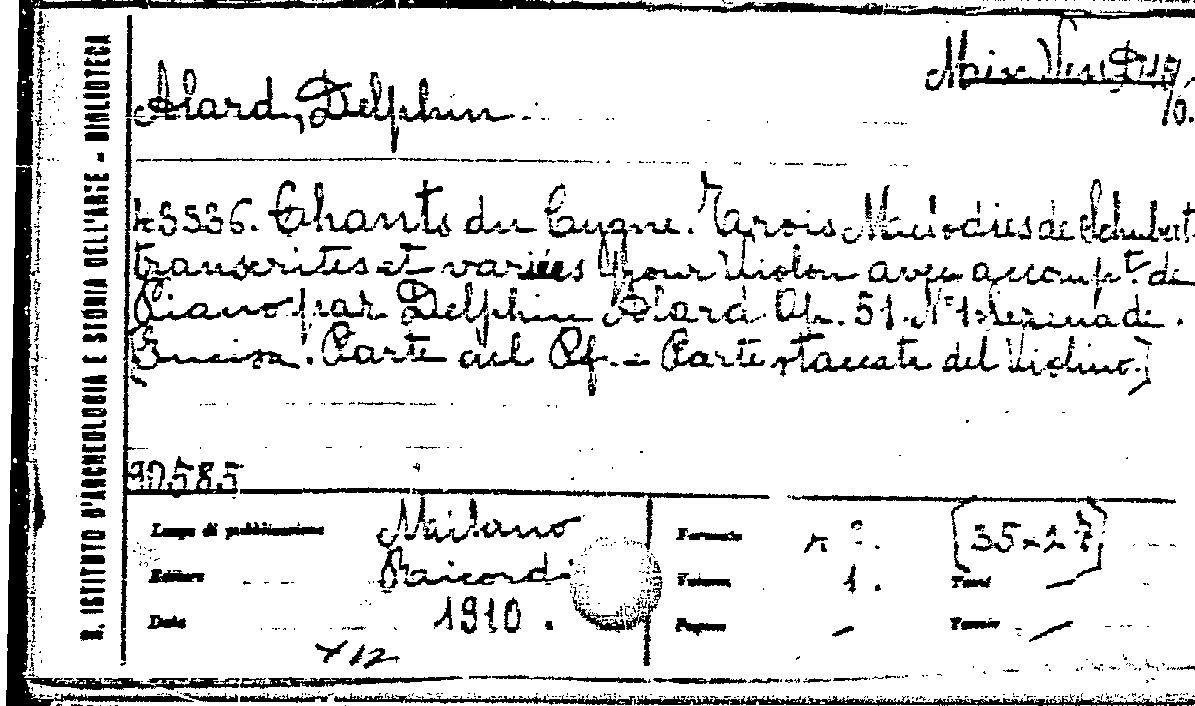 R. ISTITUTO D'ARCHEOLOGIA E STORIA DELL'ARTE - BIBLIOTECA
Alard, Delphin.
43536. Chants du Cygne. Trois Melodies de Schubert
transcrites et variées pour Violon avec accomp.t de
Piano par Delphin Alard Op. 51. N° 1. Serenade.
Parte del Pf. = Parte staccata del Violino.]
90585
Luogo di pubblicazione Milano
Editore Ricordi
Data 1910.
Formato 4°. [35-27]
Volumi 1. Tomi —
Pagine — Tavole —